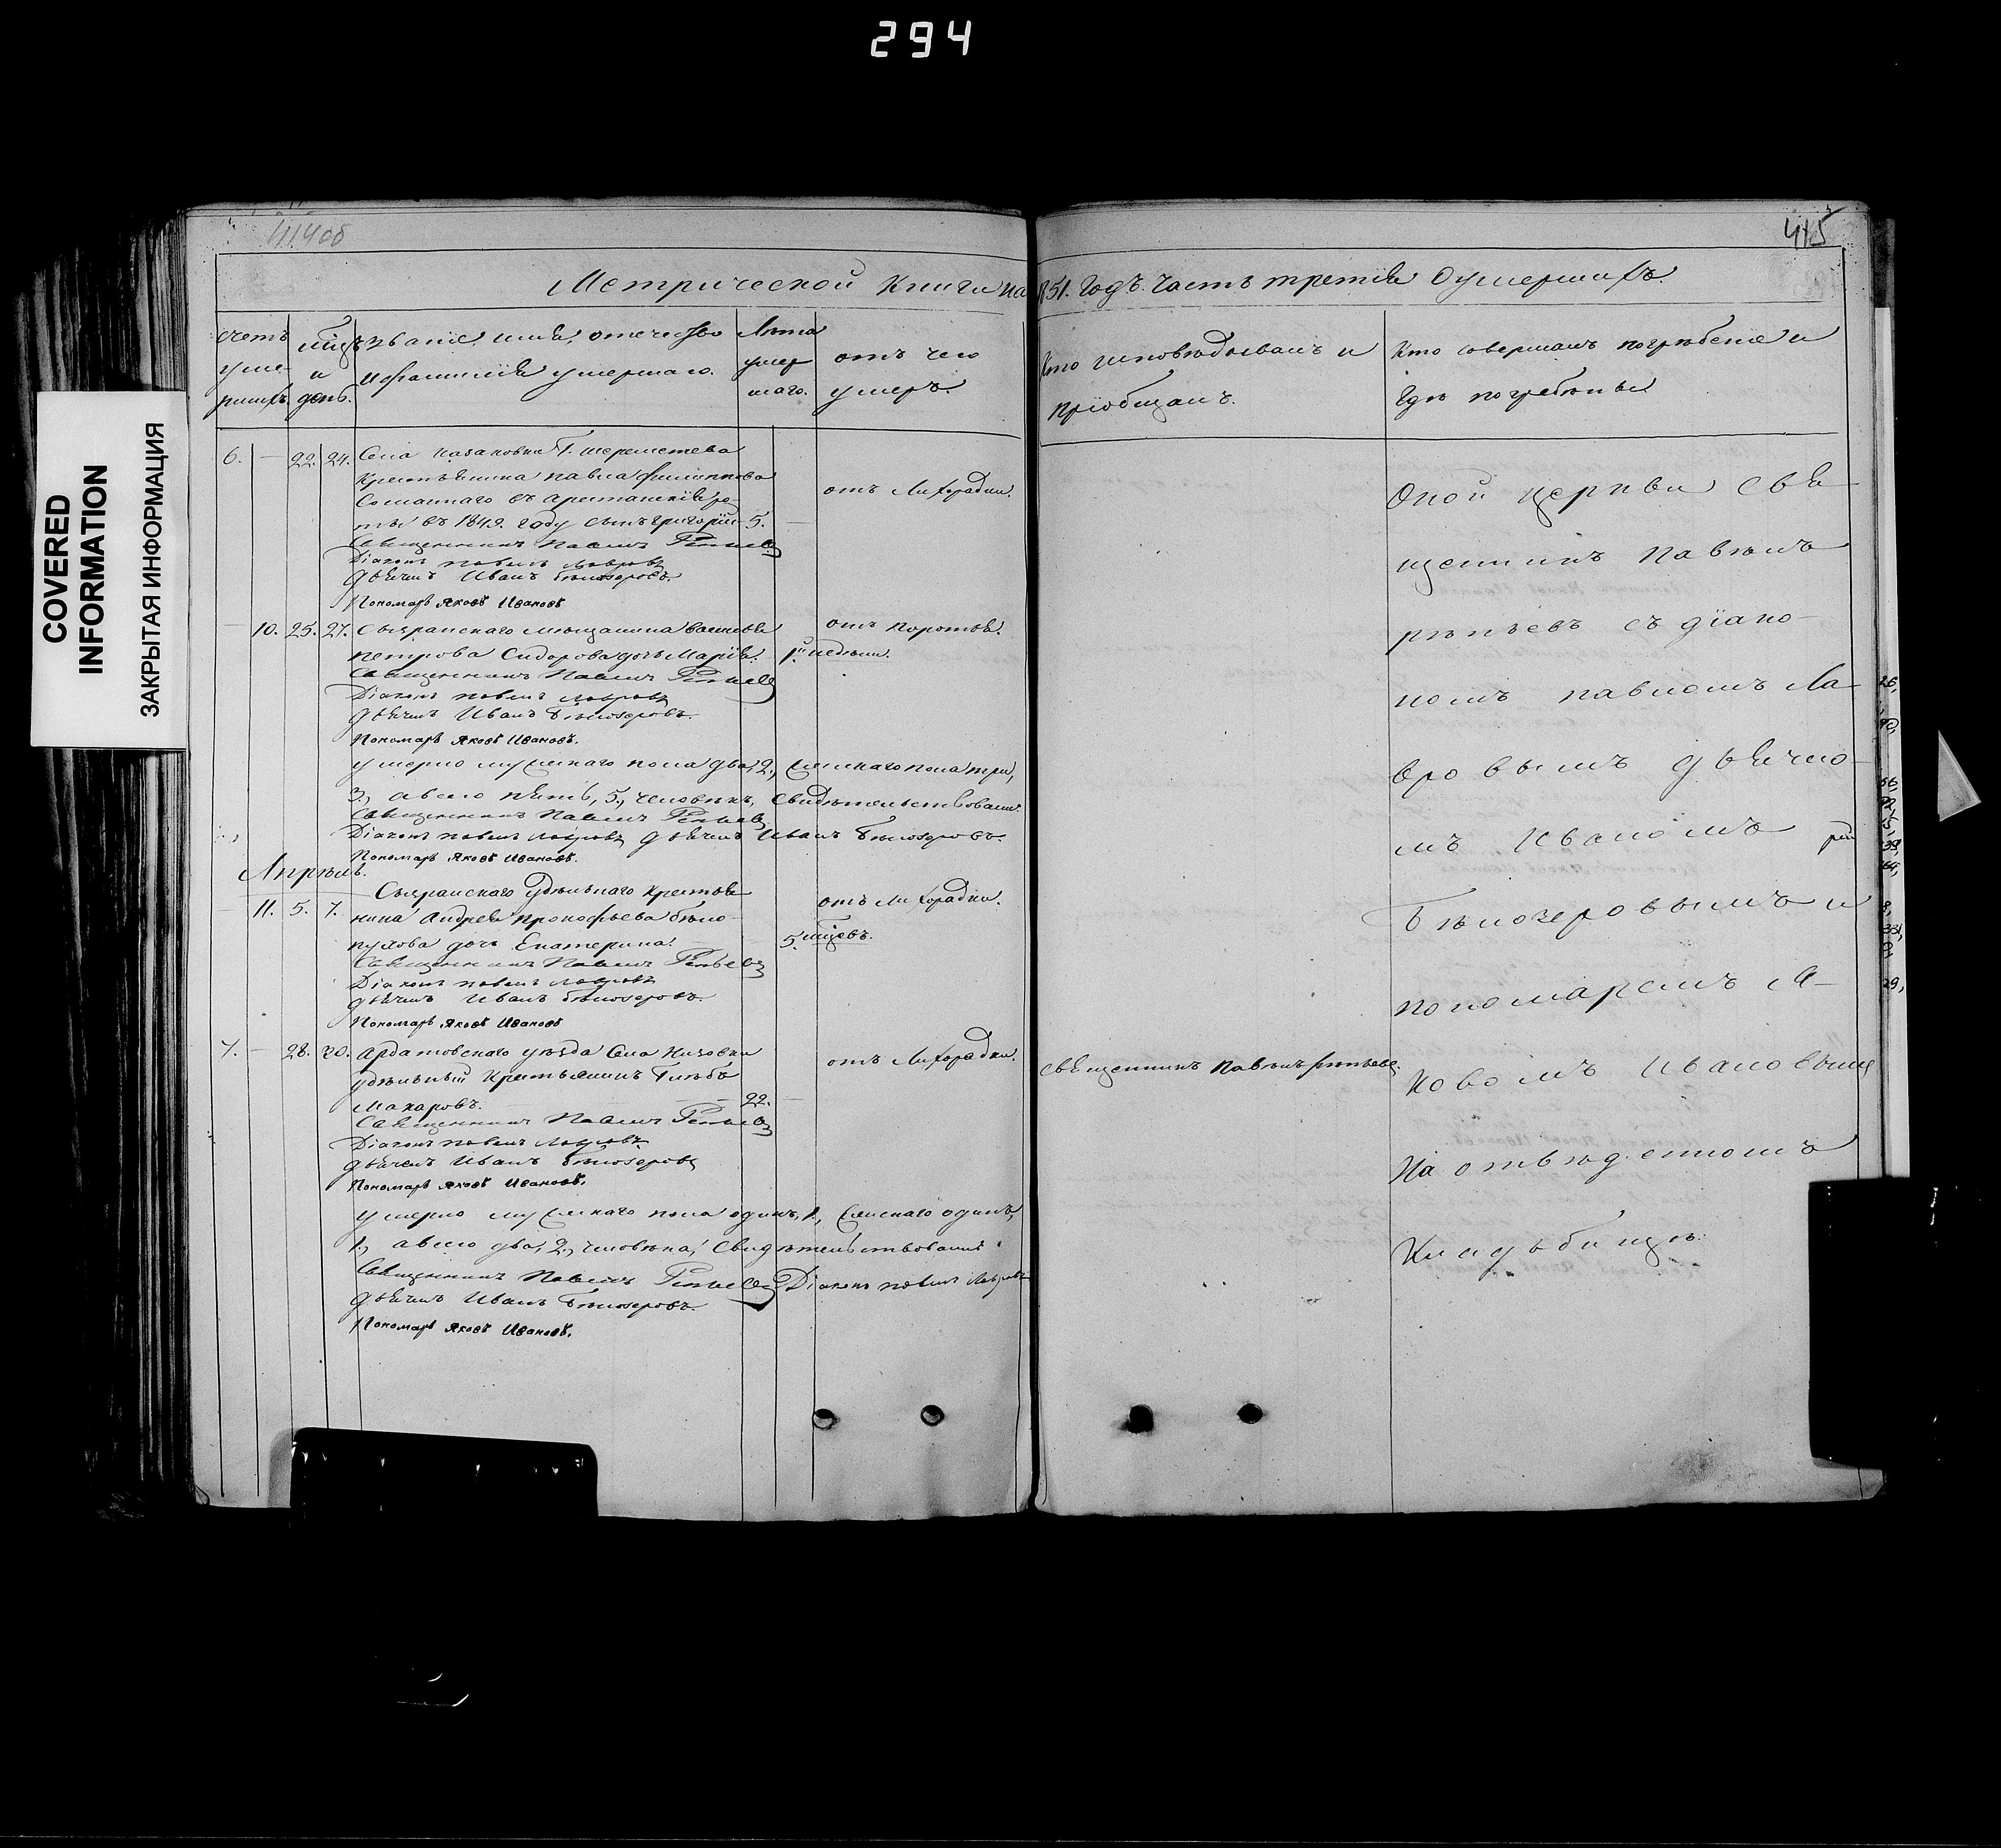 294
COVERED INFORMATION
ЗАКРЫТАЯ ИНФОРМАЦИЯ
414 об
415
Метрической Книги на 1851. годъ. часть третія Оумершихъ.
счетъ умершихъ.
мцъ и день.
званіе, имя, отечество и фамилія умершаго.
Лѣта умершаго.
отъ чего умеръ.
Кто исповѣдовалъ и пріобщалъ.
Кто совершалъ погрѣбеніе и гдѣ погребены
6. — 22. 24. Села Казаковки Г. шереметева
крестьянина павла филиппова
Сосланнаго въ арестанскія ро-
ты въ 1849. году сынъ григорій — 5. —
отъ Лихорадки.
Священникъ Павелъ Репьевъ
Діаконъ павелъ Лавровъ
дьячекъ Иванъ Бѣлозеровъ.
Пономарь Яковъ Ивановъ
— 10. 25. 27. Сызранскаго мѣщанина василья
петрова Сидорова дочь Марія.
1й недѣли.
отъ коротья.
Священникъ Павелъ Репьевъ
Діаконъ павелъ Лавровъ
дьячекъ Иванъ Бѣлозеровъ.
Пономарь Яковъ Ивановъ.
умерло мужскаго пола два, 2, женскаго пола три,
3, авсего пять, 5, человѣкъ, свидѣтельствовали:
Священникъ Павелъ Репьевъ
Діаконъ павелъ Лавровъ дьячекъ Иванъ Бѣлозеровъ.
Пономарь Яковъ Ивановъ.
Апрѣль.
— 11. 5. 7. Сызранскаго удѣльнаго крестья
нина Андрея прокофьева бѣло-
пухова дочь Екатерина.
5. мцевъ.
отъ Лихорадки.
Священникъ Павелъ Репьевъ
Діаконъ павелъ Лавровъ
дьячекъ Иванъ Бѣлозеровъ.
Пономарь Яковъ Ивановъ
7. — 28. 30. Ардатовскаго уѣзда Села Низовки
удѣльный Крестьянинъ Глѣбъ
Макаровъ. — 22. —
отъ Лихорадки.
священникъ Павелъ репьевъ.
Священникъ Павелъ Репьевъ
Діаконъ павелъ Лавровъ
дьячекъ Иванъ Бѣлозеровъ
Пономарь Яковъ Ивановъ.
умерло мужскаго пола одинъ, 1, женскаго одинъ,
1, авсего два, 2, человѣка, свидѣтельствовали
Священникъ Павелъ Репьевъ Діаконъ павелъ Лавровъ
дьячекъ Иванъ Бѣлозеровъ.
Пономарь Яковъ Ивановъ.
Оной церкви свя-
щенникъ павелъ
рѣпьевъ съ діако-
номъ павломъ Ла-
вровымъ дьячко-
мъ Иваномъ
Бѣлозеровымъ и
пономаремъ Я-
ковомъ Ивановымъ
На отвѣденномъ
Кладъбищѣ.